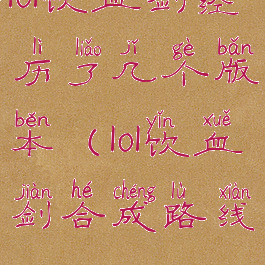 lol饮血剑经
lì liǎo jǐ gè bǎn
历了几个版
běn yǐn xuě
本（lol饮血
jiàn hé chéng lù xiàn
剑合成路线